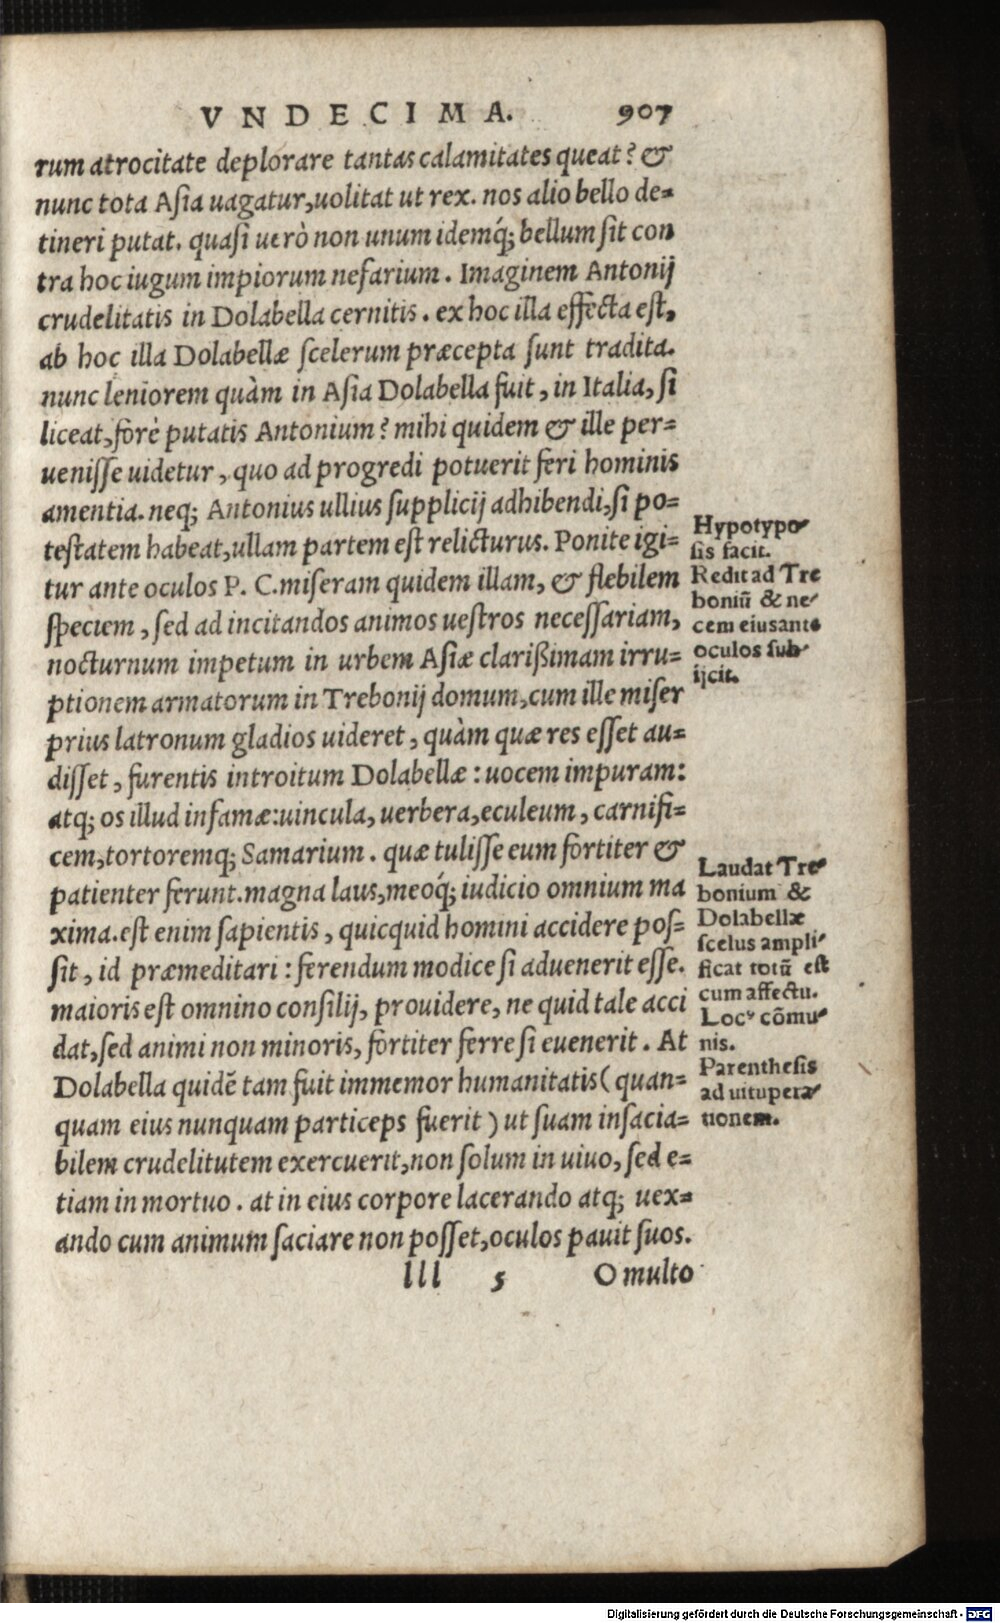 VNDECIMA. 907
rum atrocitate deplorare tantas calamitates queat? &
nunc tota Asia uagatur, uolitat ut rex. nos alio bello de=
tineri putat. quasi uerò non unum idemq́; bellum sit con
tra hoc iugum impiorum nefarium. Imaginem Antonij
crudelitatis in Dolabella cernitis. ex hoc illa effecta est,
ab hoc illa Dolabellæ scelerum præcepta sunt tradita.
nunc leniorem quàm in Asia Dolabella fuit, in Italia, si
liceat, forè putatis Antonium? mihi quidem & ille per=
uenisse uidetur, quo ad progredi potuerit feri hominis
amentia. neq; Antonius ullius supplicij adhibendi, si po=
testatem habeat, ullam partem est relicturus. Ponite igi=
tur ante oculos P. C. miseram quidem illam, & flebilem
speciem, sed ad incitandos animos uestros necessariam,
nocturnum impetum in urbem Asiæ clarißimam irru=
ptionem armatorum in Trebonij domum, cum ille miser
prius latronum gladios uideret, quàm quæ res esset au=
disset, furentis introitum Dolabellæ: uocem impuram:
atq; os illud infamæ: uincula, uerbera, eculeum, carnifi=
cem, tortoremq; Samarium. quæ tulisse eum fortiter &
patienter ferunt. magna laus, meoq́; iudicio omnium ma
xima. est enim sapientis, quicquid homini accidere pos=
sit, id præmeditari: ferendum modice si aduenerit esse.
maioris est omnino consilij, prouidere, ne quid tale acci
dat, sed animi non minoris, fortiter ferre si euenerit. At
Dolabella quidē tam fuit immemor humanitatis (quan=
quam eius nunquam particeps fuerit) ut suam insacia=
bilem crudelitutem exercuerit, non solum in uiuo, sed e=
tiam in mortuo. at in eius corpore lacerando atq; uex=
ando cum animum saciare non posset, oculos pauit suos.
lll 5 O multo
Hypotypo-
sis facit.
Redit ad Tre
boniū & ne-
cem eius ante
oculos sub-
ijcit.
Laudat Tre-
bonium &
Dolabellæ
scelus ampli-
ficat totū est
cum affectu.
Locꝰ cōmu-
nis.
Parenthesis
ad uitupera-
tionem.
Digitalisierung gefördert durch die Deutsche Forschungsgemeinschaft - DFG